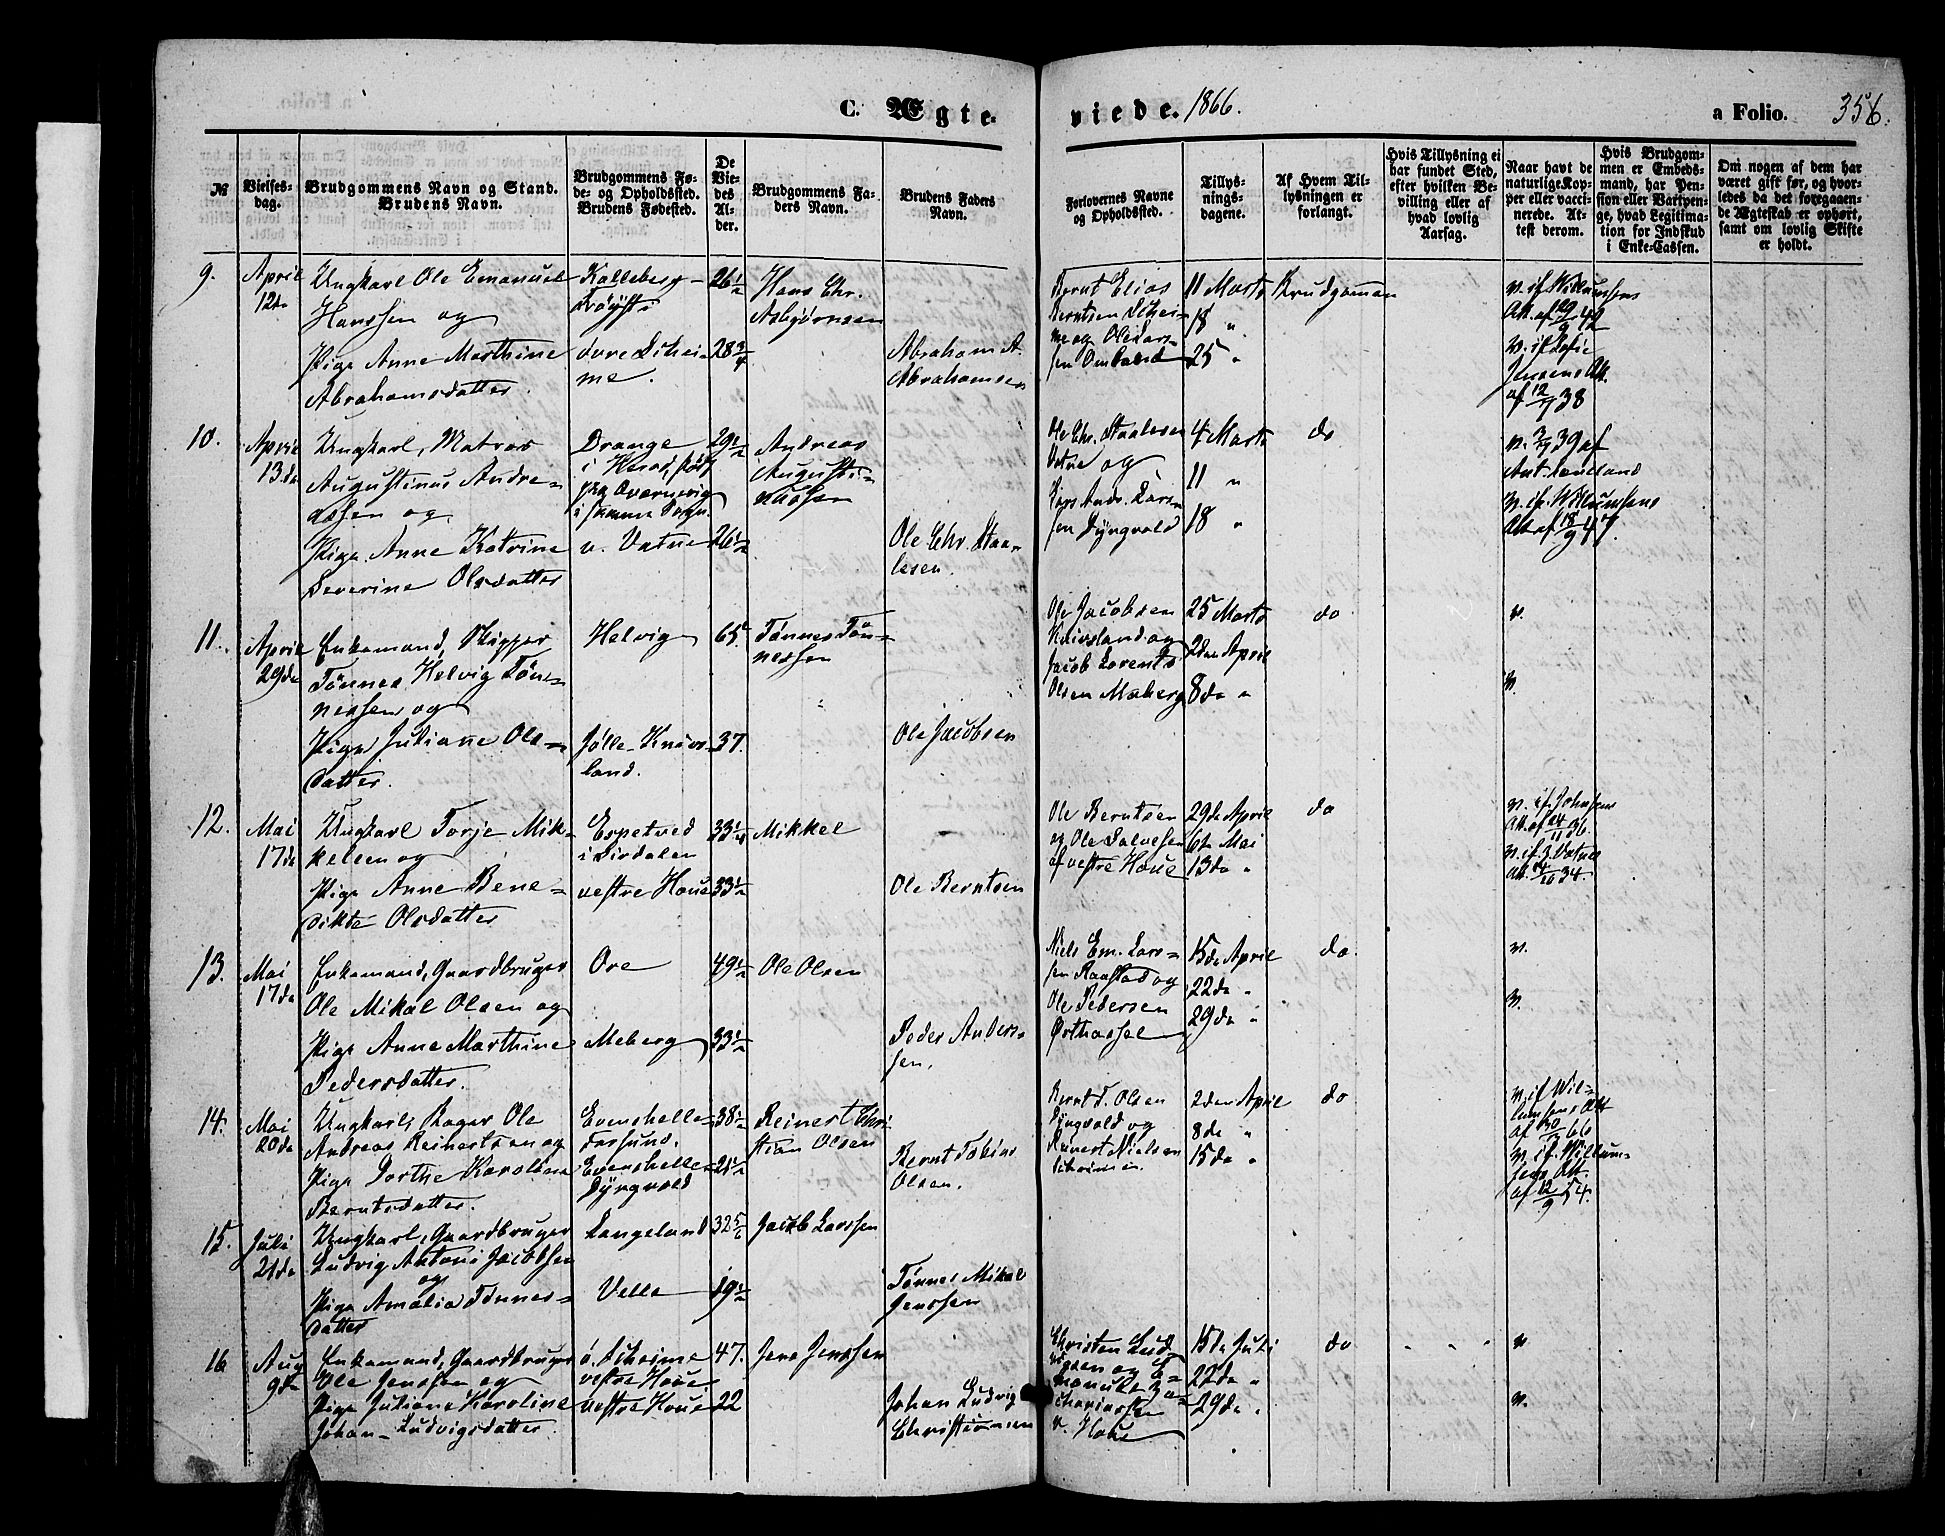 C. Ægte
viede. 1866.
a Folio. 356.
№
Vielses-
dag.
Brudgommens Navn og Stand.
Brudens Navn.
Brudgommens Fø-
de- og Opholdssted.
Brudens Fødested.
De
Vie-
des
Al-
der.
Brudgommens Fa-
ders Navn.
Brudens Faders
Navn.
Forlovernes Navne
og Opholdssted.
Tillys-
nings-
dagene.
Af Hvem Til-
lysningen er
forlangt.
Hvis Tillysning ei
har fundet Sted,
efter hvilken Be-
villing eller af
hvad lovlig
Aarsag.
Naar havt de
naturlige Kop-
per eller vacci-
nerede. At-
test derom.
Hvis Brudgom-
men er Embeds-
mand, har Pen-
sion eller Vartpen-
ge, hvad Legitima-
tion for Indskud
i Enke-Cassen.
Om nogen af dem har
været gift før, og hvor-
ledes da det foregaaen-
de Ægteskab er ophørt,
samt om lovlig Skifte
er holdt.
9.
April
12te
Ungkarl Ole Emanuel
Hanssen og
Pige Anne Marthine
Abrahamsdatter.
Kalleberg
øvre Schei-
me.
26 1/2
28 3/4
Hans Chr.
Asbjørnsen
Abraham A.
Abrahamsen
Bernt Elias
Berntsen Schei-
me og Ole Lar-
sen
11 Marts
18 "
25 "
Brudgommen
v. if. Willumsens
Att. af 19/9 42
v. if.
Jensens Att.
af 12/7 38
10.
April
13de
Ungkarl, Matros
Augustinus Andre-
asen og
Pige Anne Katrine
Severine Olsdatter
Drange
i Herad
i samme Sogn.
v. Vatne
29 1/2
26 1/2
Andreas
Augusti-
nussen
Ole Chr. Staa-
lesen.
Ole Chr. Staalesen
Vatne og
Lars Andr. Lars-
sen Dyngvold
4 Marts
11 "
18 "
do
v. 3/7 39 af
v. if. Willumsens
Att. af 18/9 47.
11.
April
29de
Enkemand, Skipper
Tønnes Helvig Tøn-
nessen og
Pige Juliane Ols-
datter.
Helvig
Jølle-Knivs-
land.
65
37.
Tønnes Tøn-
nessen
Ole Jacobsen
Ole Jacobsen
Knivsland og
Jacob Lorents
Olsen Meberg
25 Marts
2den April
8de "
do
v.
v.
12.
Mai
17de
Ungkarl Torje Mik-
kelsen og
Pige Anne Bene-
dikte Olsdatter
Espetved
i Sirdalen
vestre Haue
33 1/4
33 1/2
Mikkel
Ole Berntsen
Ole Berntsen
og Ole Salvesen
af vestre Haue
29de April
6te Mai
13de "
do
v. if. Johnsens
Att. af 24/11 36.
v. if. J. Vatnes
Att. 14/10 34.
13.
Mai
17de
Enkemand, Gaardbruger
Ole Mikal Olsen og
Pige Anne Marthine
Pedersdatter.
Ore
Meberg
49 1/2
33 1/2
Ole Olsen
Peder Anders-
sen.
Niels Em. Lars-
sen Raastad og
Ole Pedersen
Østhassel
15de April
22de "
29de "
do.
v.
v.
14.
Mai
20de
Ungkarl, Bager Ole
Andreas Reinertsen og
Pige Dorthe Karoline
Berntsdatter.
Evenshelle-
Farsund.
Evenshelle-
Dyngvold
38 1/2
21 1/2
Reinert Chri-
stian Olsen
Bernt Tobias
Olsen.
Bernt T. Olsen
Dyngvold og
Reinert Nielsen
2den April
8de "
15de "
do
v. if. Wil-
lumsens Att
af 30/ 66
v. if. Willum-
sens Att.
af 12/9 54.
15.
Juli
21de
Ungkarl, Gaardbruger
Ludvig Antoni Jacobsen
og
Pige Amalia Tønnes-
datter
Langeland
Velle
32 5/6
19 1/2
Jacob Larssen
Tønnes Mikal
Jenssen
16
Aug
9de
Enkemand, Gaardbruger
Ole Jenssen og
Pige Juliane Karoline
Johan-Ludvigsdatter.
ø. Scheime
vestre Haue
vestre Haue
47.
22
Jens Jenssen
Johan Ludvig
Christiansen
Christen Lud-
vigsen og E-
manuel Za-
chariassen
v. Haue
15de Juli
22de "
29de "
do
v
v.